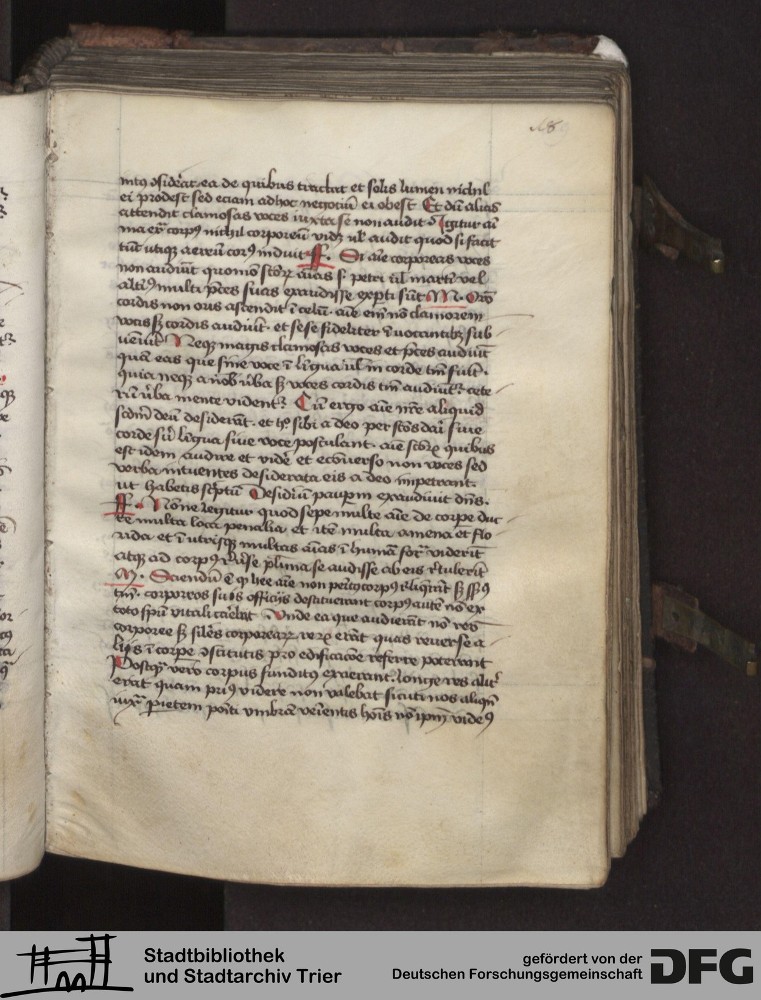 185
intus ꝯsiderat ea de quibus tractat et solis lumen nichil
ei prodest sed eciam ad hoc negociū ei obest Et dū alias
attendit clamosas voces iuxta se non audit Igitur aī
ma ex̄ corpꝰ nichil corporeū vidꝫ ul audit quod si facit
tūc utiqꝫ aereū corꝰ induit ff. Si aīe corporeas voces
non audiūt quomō scōrꝝ aīas s. petri ul martī vel
altiꝰ multi p̄ces suas exaudisse exp̄ti sūt M. Orō
cordis non oris ascendit ī celū. aīe eīm nō clamorem
vocis sꝫ cordis audiūt. et sese fideliter īuocantibꝫ sub
ueniūt Neqꝫ magis clamosas voces et p̄ces audiūt
quā eas que sine voce ī līgua ul in corde tm̄ fiūt.
quia neqꝫ a nob v̄ba sꝫ voces cordis tm̄ audiūt. cete
rū v̄ba mente vident Cū ergo aīe nr̄e aliquid
scdm̄ deū desiderāt. et hͦ sibi a deo per scōs dari siue
corde siū līgua siue voce postulant. aīe scōrꝝ quibus
est idem audire et vider̄ et ecōuerso non voces sed
verba intuentes desiderata eis a deo impetrant.
ut habetis scptū Desideriū paupm exaudiuit dn̄s.
ff. Nōne legitur quod sepe multe aīe de corpe duc
te multa loca penalia et itē multa amena et flo
rida et ī utrisqꝫ multas aīas ī humā for̄ viderīt
atqꝫ ad corpꝰ rūse pl̄ima se audisse ab eis rtulerīt
M. Sciendū ē qͥ hee aīe non penitꝰ corpꝰ rliqrāt sꝫ
tm̄. corporeos suos officijs destituerant corpꝰ autē nō ex
toto spū vitali carebat Unde ea que audierāt nō res
corporee sꝫ siles corporearꝝ rerꝝ erāt quas reuerse a
lijs ī corpe ꝯstitutis pro edificacōe referre poterant
Postqꝫ vero corpus funditꝰ exuerant longe res alit
erat quam priꝰ videre non valebat sicuti nos aliqn̄
iuxͣ parietem positi vmbrā veīentis hoīs nō ipm̄ videꝰ
Stadtbibliothek
und Stadtarchiv Trier
gefördert von der
Deutschen Forschungsgemeinschaft
DFG